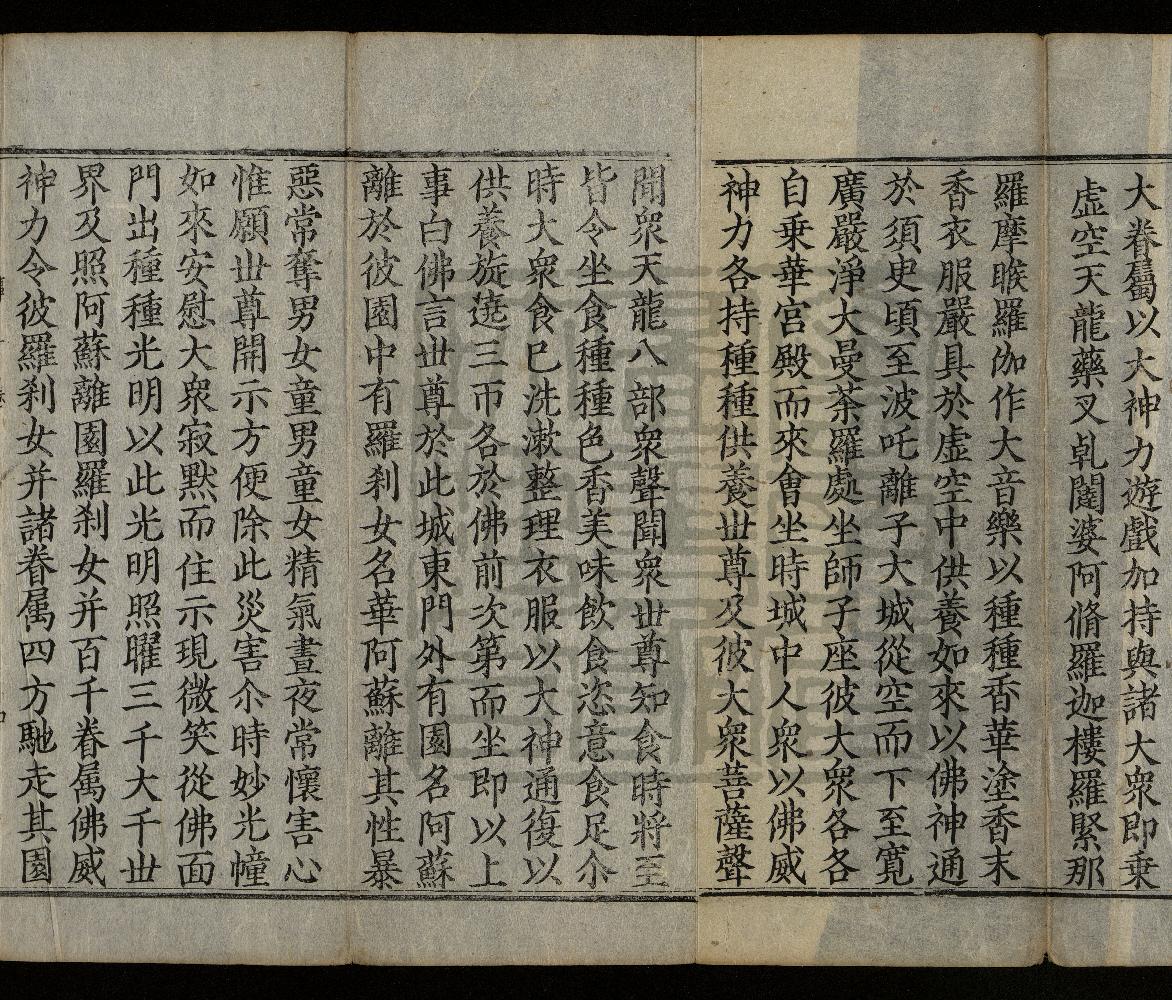 大眷屬以大神力遊戲加持與諸大衆即乗
虚空天龍藥叉乹闥婆阿脩羅迦樓羅緊那
羅摩睺羅伽作大音樂以種種香華塗香末
香衣服嚴具於虚空中供養如來以佛神通
於須臾頃至波吒離子大城從空而下至寛
廣嚴淨大曼荼羅處坐師子座彼大衆各各
自乗華宮殿而來會坐時城中人衆以佛威
神力各持種種供養世尊及彼大衆菩薩聲
聞衆天龍八部衆聲聞衆世尊知食時將至
皆令坐食種種色香美味飲食恣意食足尒
時大衆食已洗漱整理衣服以大神通復以
供養旋遶三帀各於佛前次第而坐即以上
事白佛言世尊於此城東門外有園名阿蘇
離於彼園中有羅刹女名華阿蘇離其性暴
惡常奪男女童男童女精氣晝夜常懷害心
惟願世尊開示方便除此災害尒時妙光幢
如來安慰大衆寂默而住示現微笑從佛面
門出種種光明以此光明照曜三千大千世
界及照阿蘇離園羅刹女并百千眷属佛威
神力令彼羅刹女并諸眷属四方馳走其園